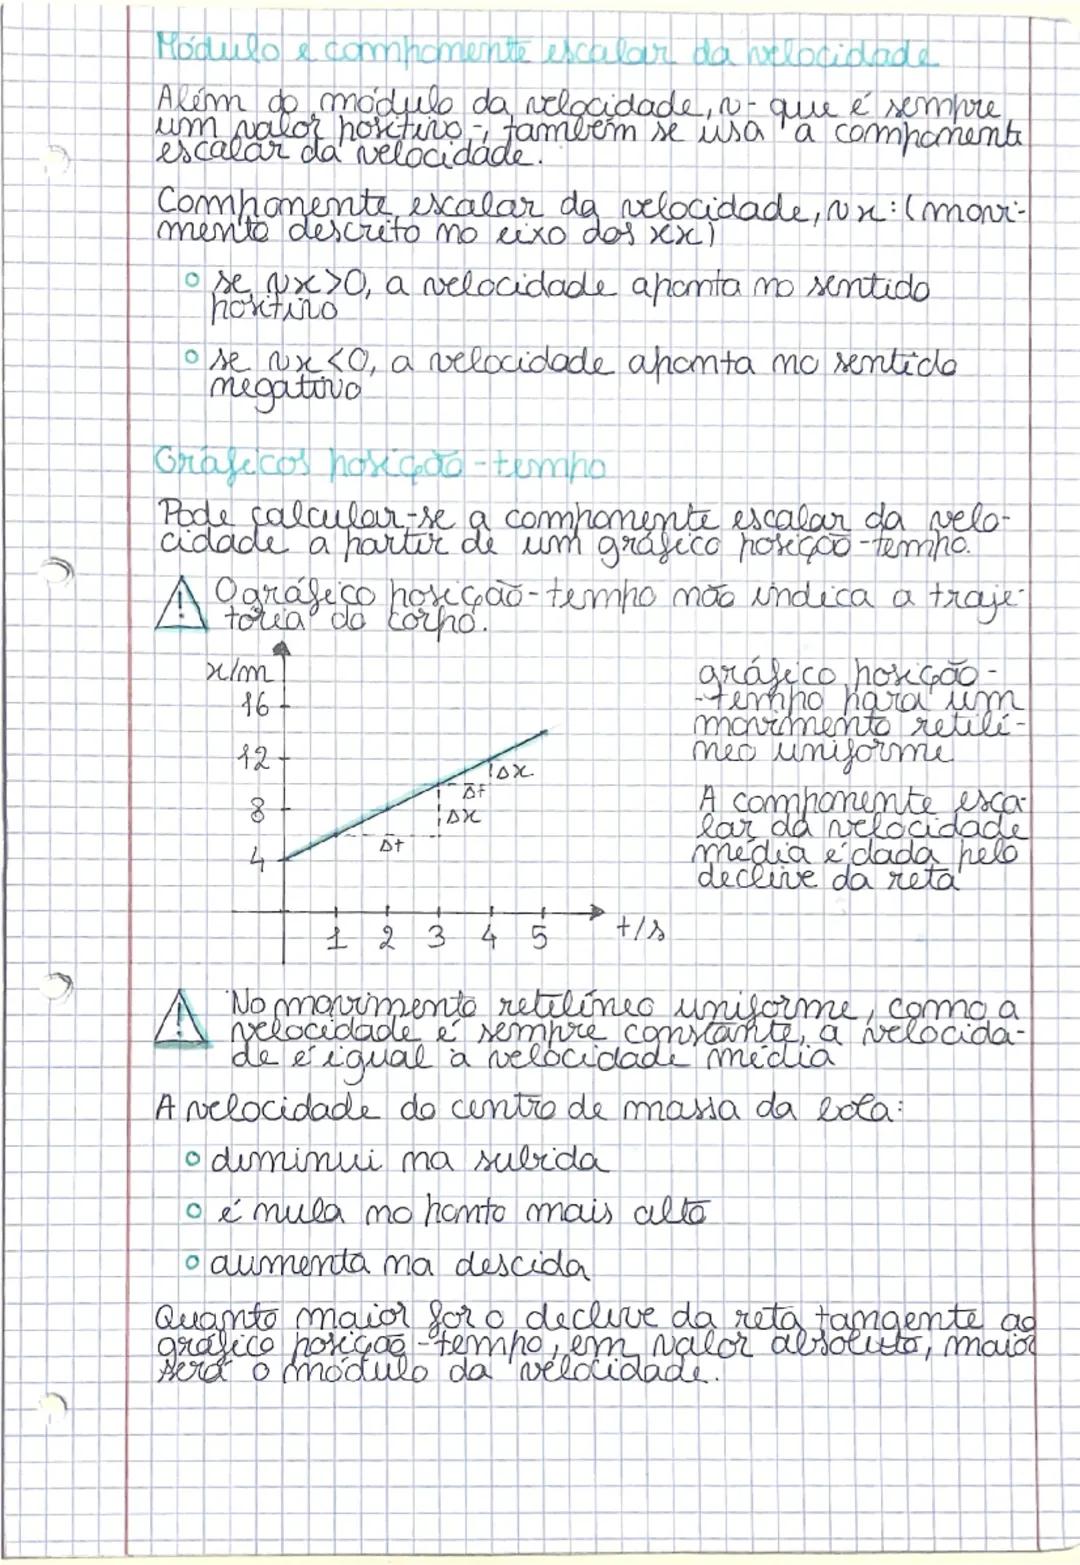 Módulo e componente escalar da velocidade
Além do módulo da velocidade, v - que é sempre
um valor positivo -, também se usa a componente
escalar da velocidade.
Componente escalar da velocidade, vx: (movi-
mento descrito no eixo dos xx)
se vx>0, a velocidade aponta no sentido
positivo
se vx<0, a velocidade aponta no sentido
negativo
Gráficos posição-tempo
Pode calcular-se a componente escalar da velo-
cidade a partir de um gráfico posição-tempo.
! O gráfico posição-tempo não indica a traje-
tória do corpo.
x/m
16
12
8
4
Δx
Δt
Δx
Δt
1 2 3 4 5 t/s
gráfico posição-
-tempo para um
movimento retilí-
neo uniforme
A componente esca-
lar da velocidade
média é dada pelo
declive da reta
! No movimento retilíneo uniforme, como a
velocidade é sempre constante, a velocida-
de é igual à velocidade média
A velocidade do centro de massa da bola:
diminui na subida
é nula no ponto mais alto
aumenta na descida
Quanto maior for o declive da reta tangente ao
gráfico posição-tempo, em valor absoluto, maior
será o módulo da velocidade.